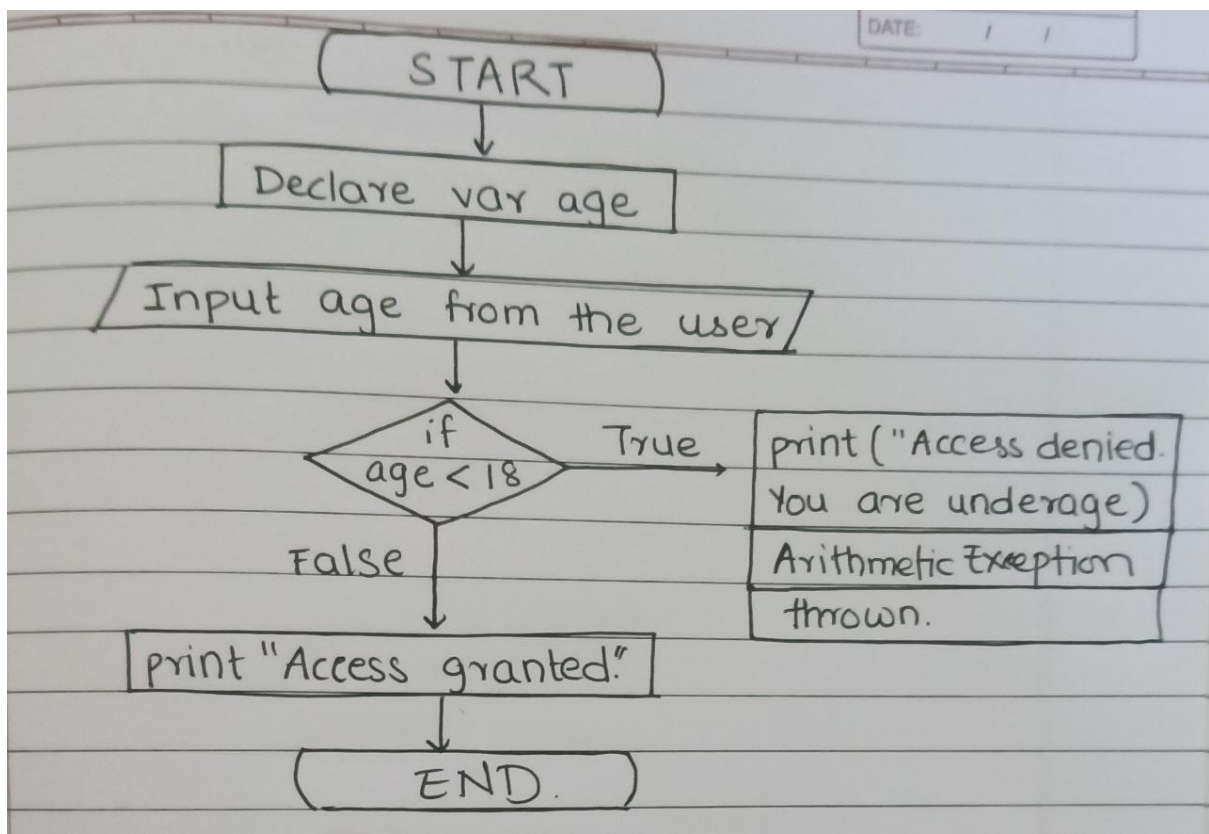 DATE: / /
START
Declare var age
Input age from the user
if
age < 18
True
print ("Access denied.
You are underage)
Arithmetic Exception
thrown.
False
print "Access granted."
END.